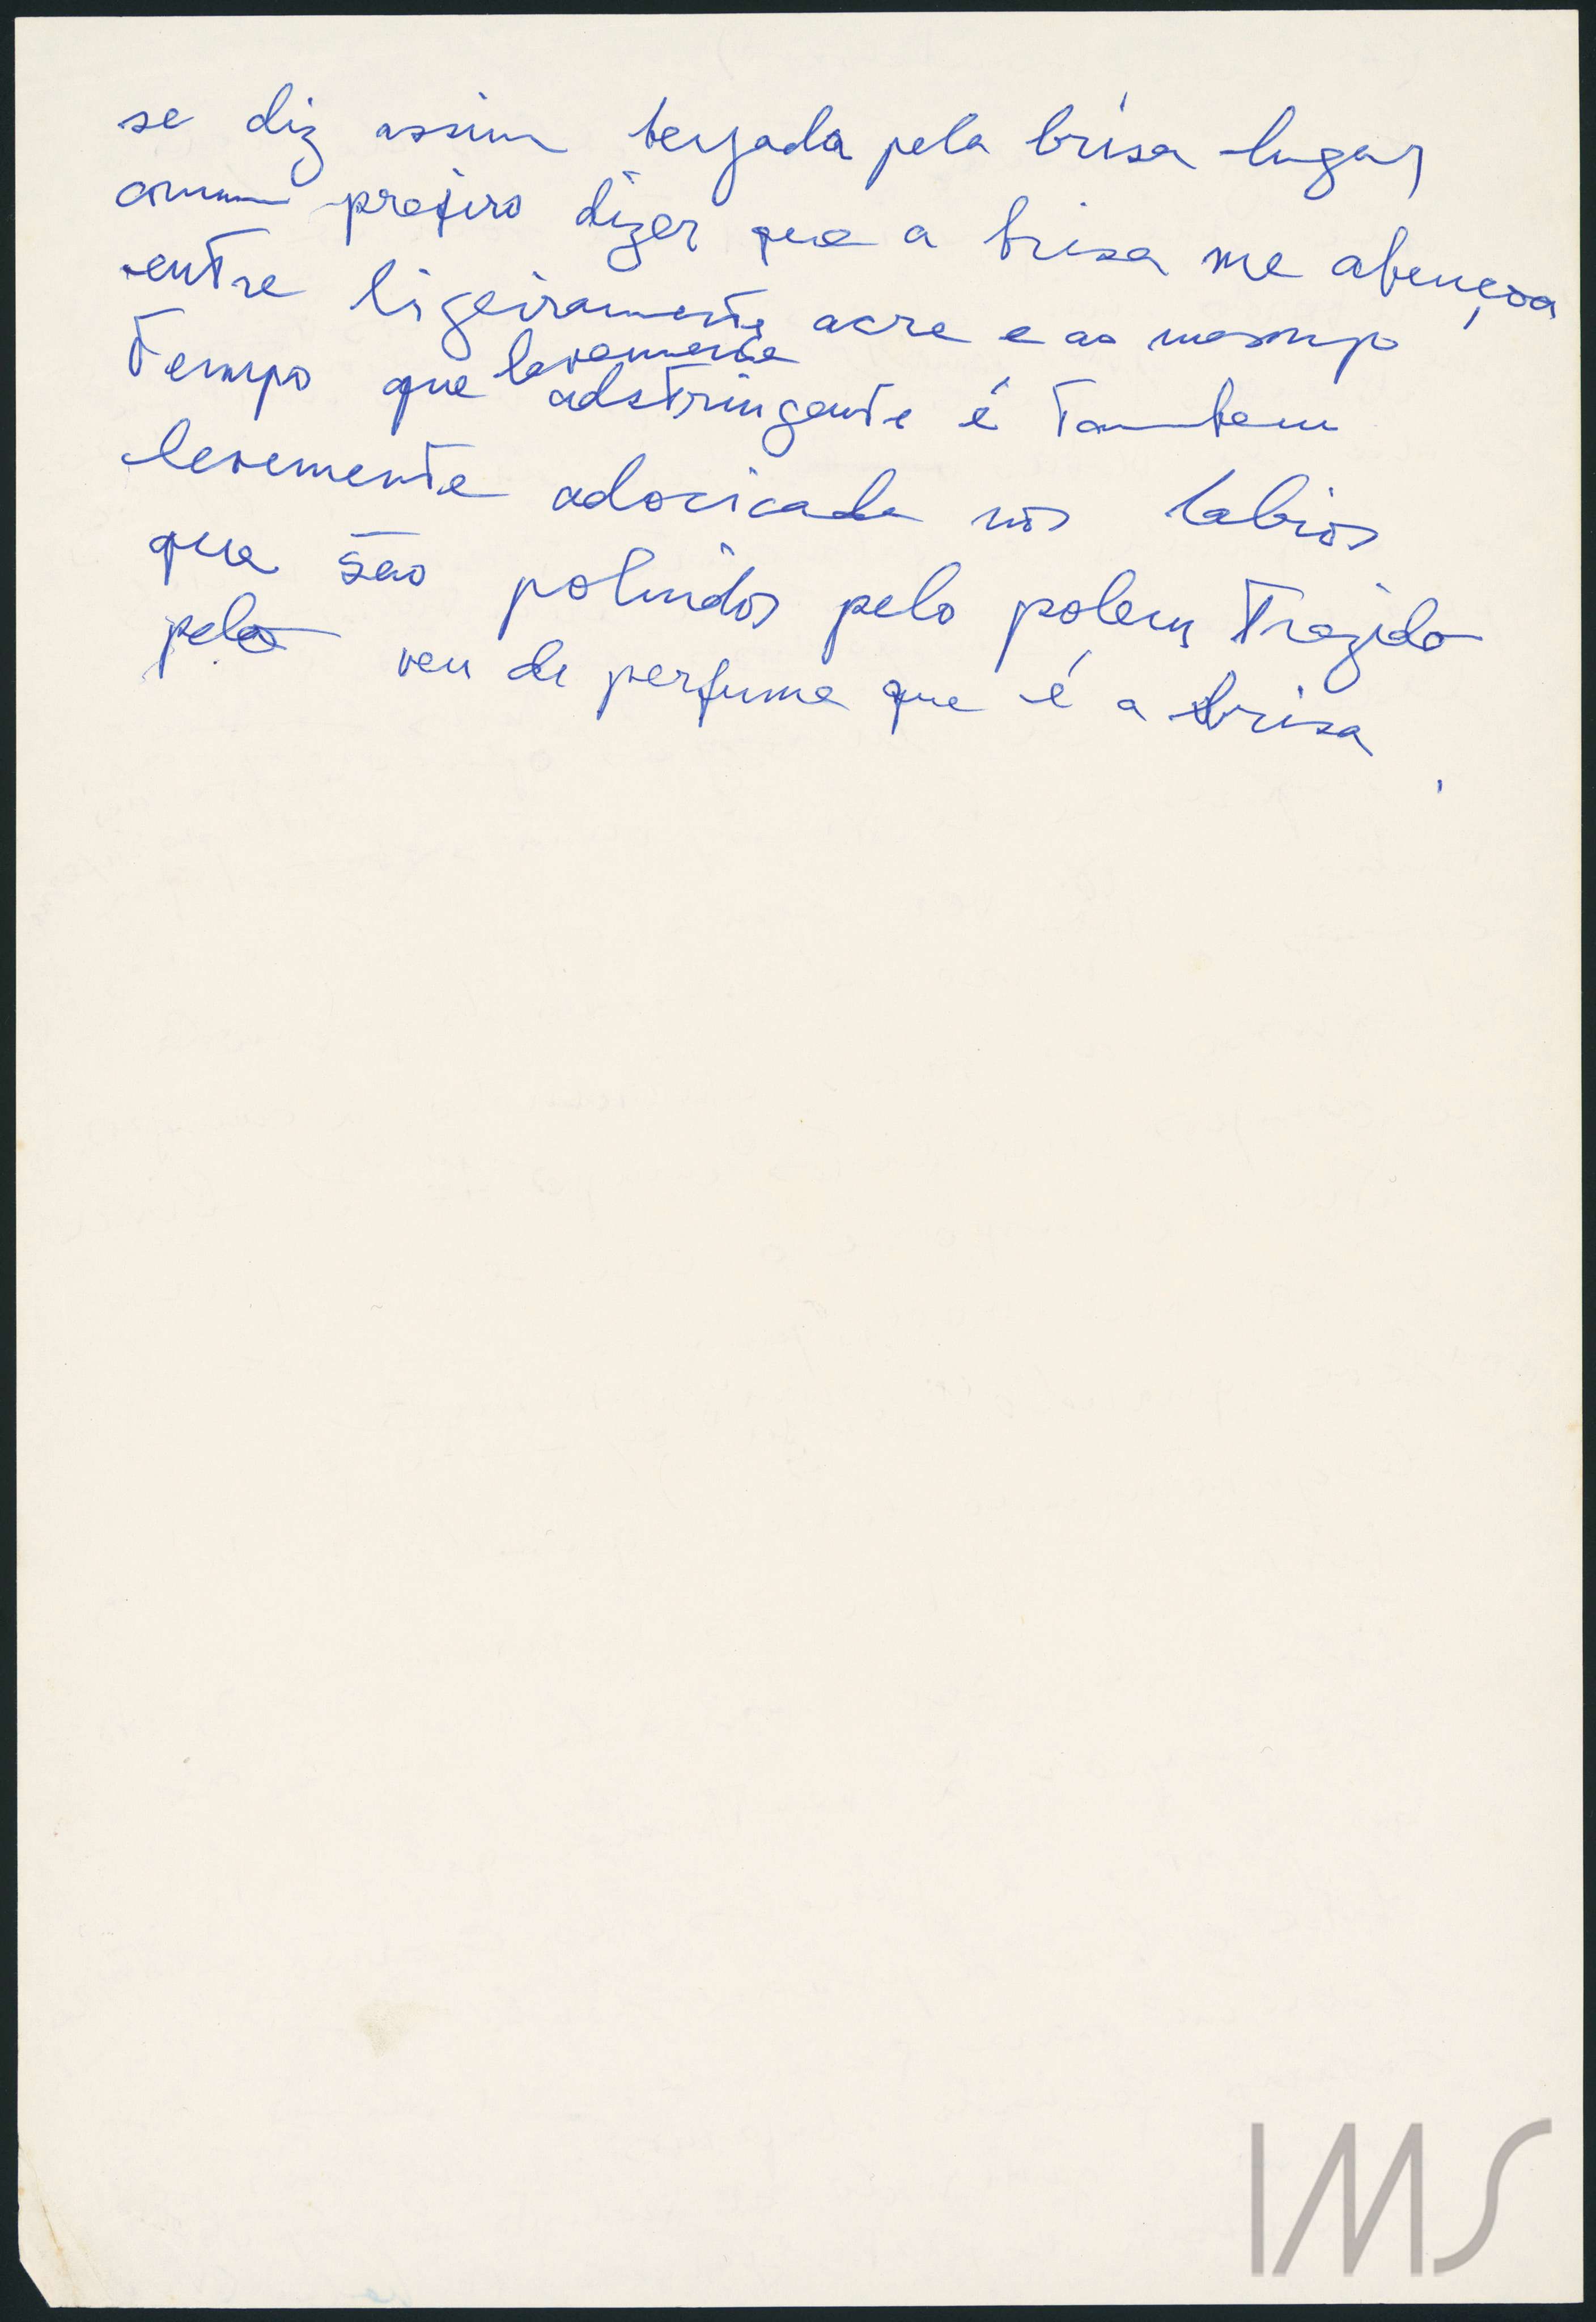 se diz assim beyjada pela brisa lugar
comum prefiro dizer que a brisa me abençoa
entre ligeiramente acre e ao mesmo
levemente
Tempo que adstringente é Tambem
levemente adocicada nos labios
que são poluidos pelo polem Trazido
pelo veu de perfume que é a brisa.
IMS